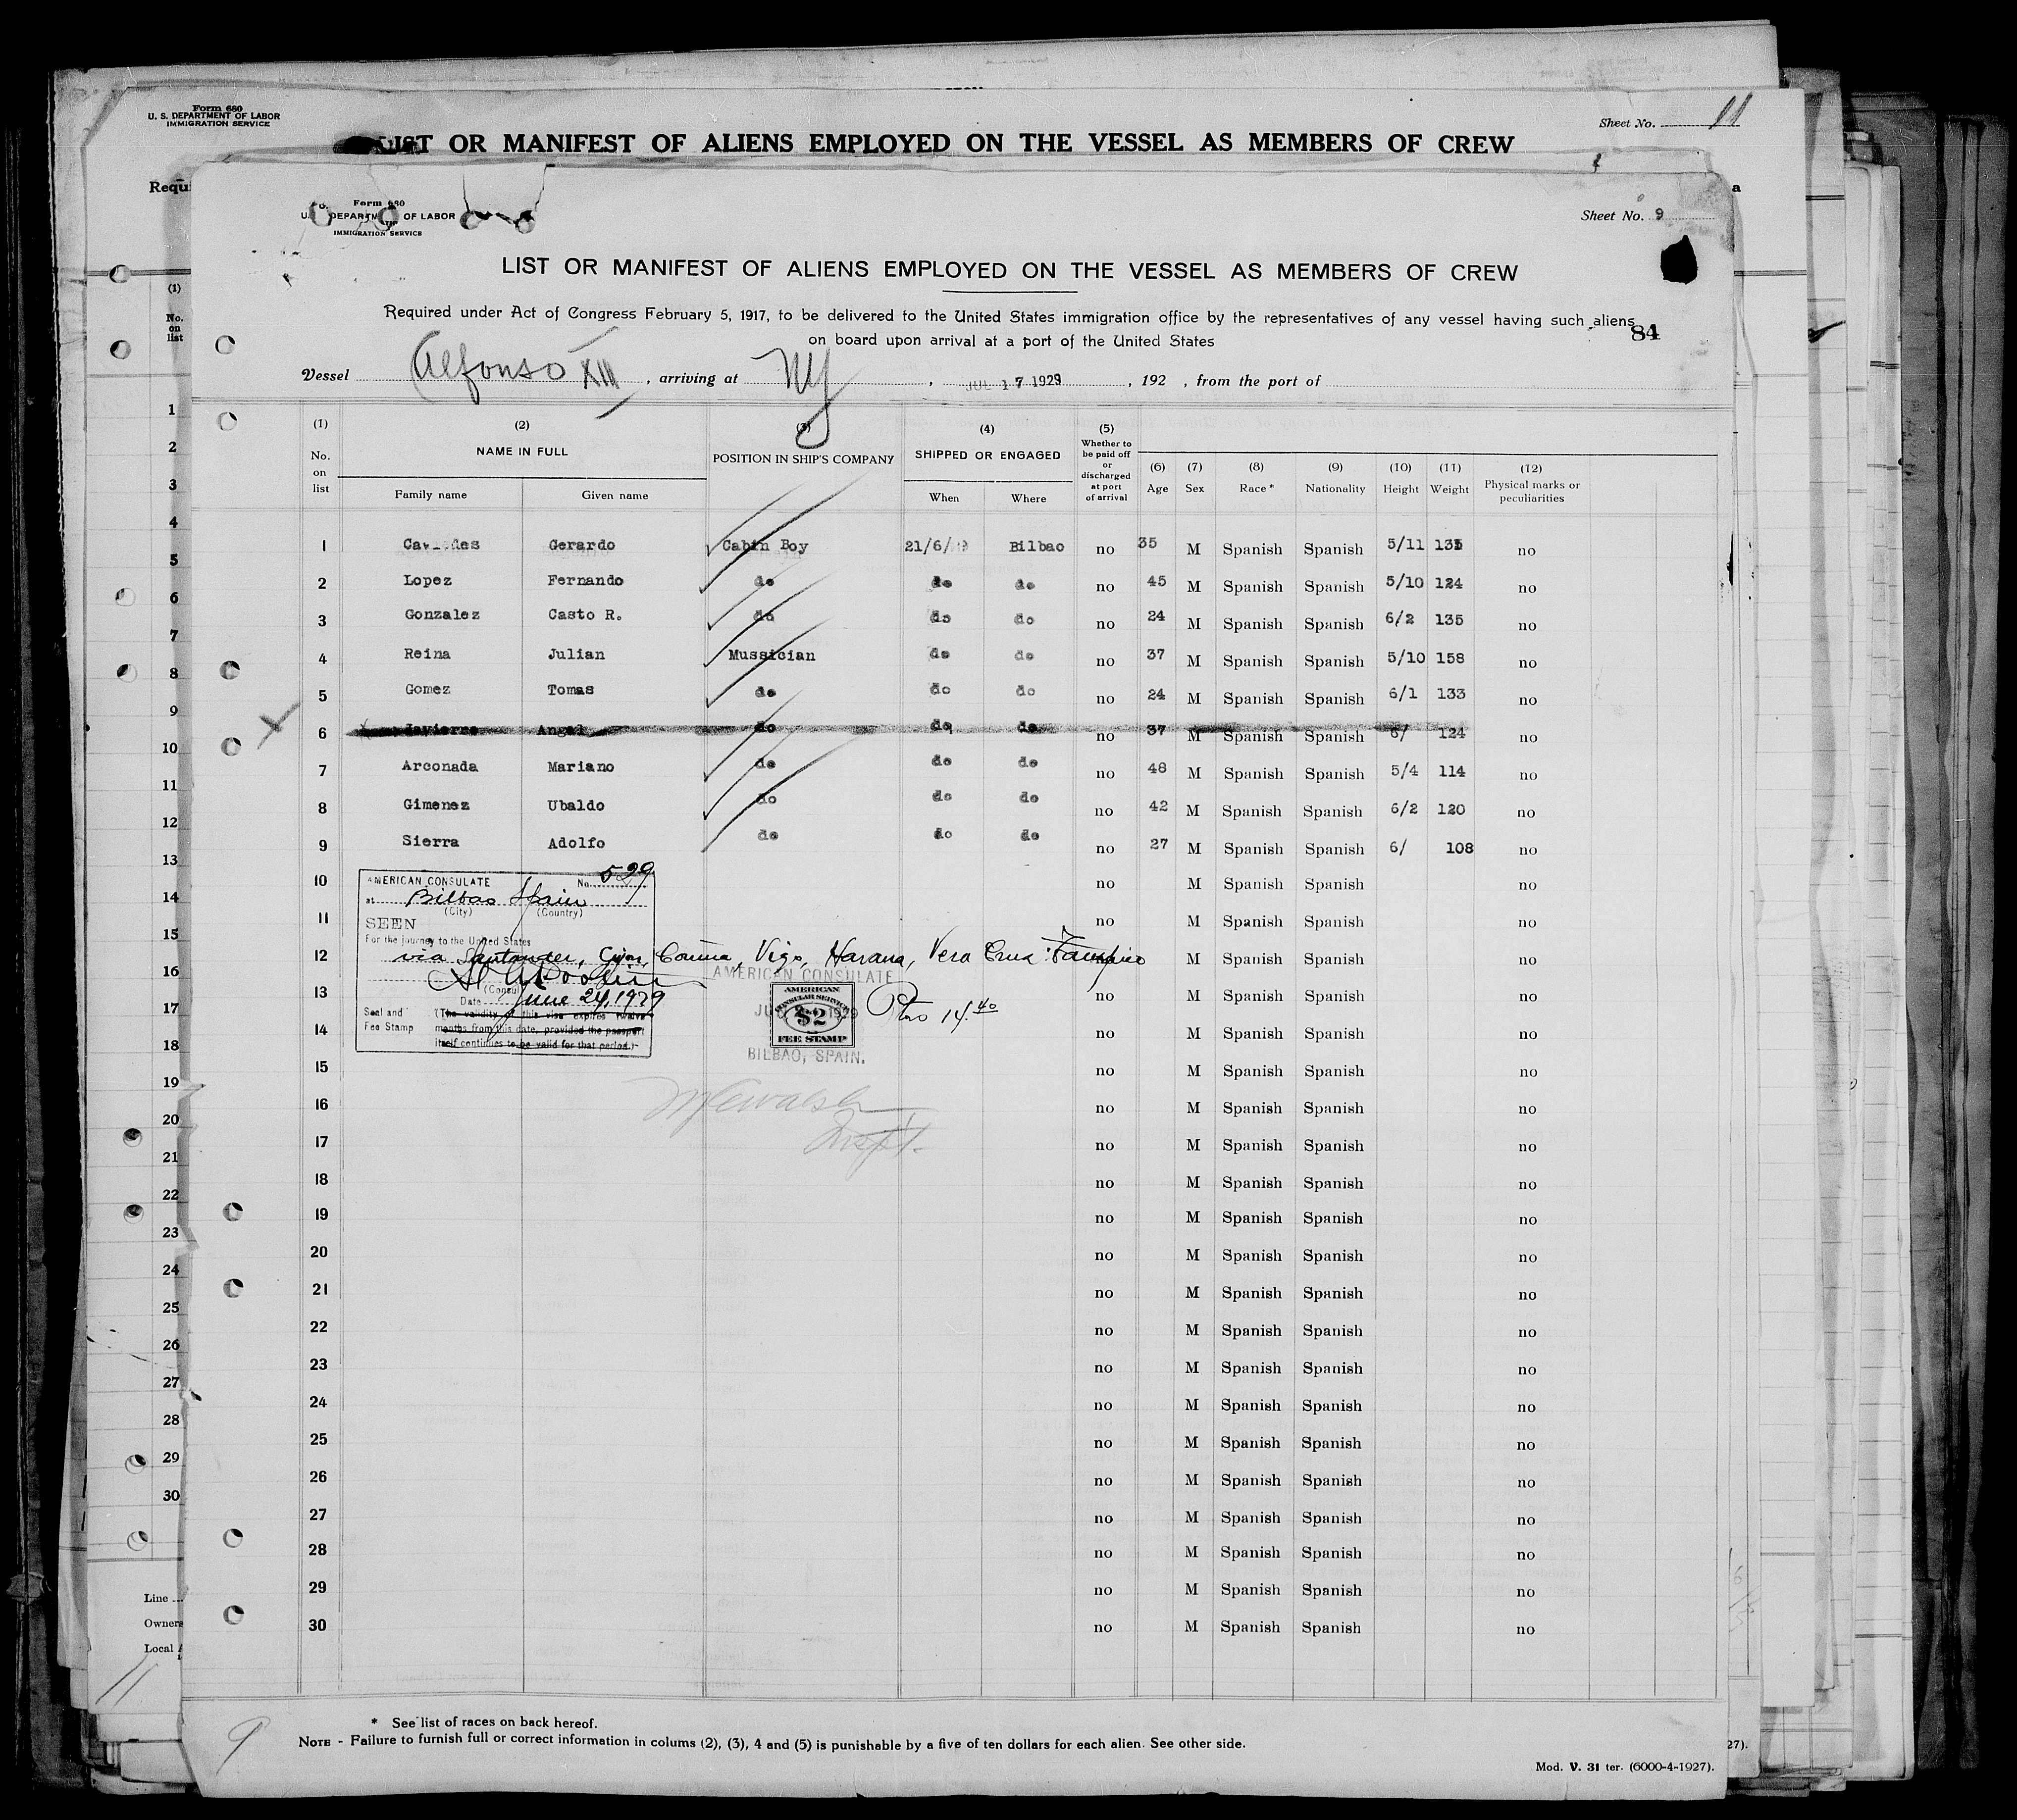 Form 680
U. S. DEPARTMENT OF LABOR
IMMIGRATION SERVICE
Sheet No. 11
LIST OR MANIFEST OF ALIENS EMPLOYED ON THE VESSEL AS MEMBERS OF CREW
Requi
a
Form 680
U. S. DEPARTMENT OF LABOR
IMMIGRATION SERVICE
Sheet No. 9
LIST OR MANIFEST OF ALIENS EMPLOYED ON THE VESSEL AS MEMBERS OF CREW
Required under Act of Congress February 5, 1917, to be delivered to the United States immigration office by the representatives of any vessel having such aliens
on board upon arrival at a port of the United States
84
Vessel Alfonso XIII, arriving at NY, JUL 17 1929, 192 , from the port of
(1) No. on list (2) NAME IN FULL Family name Given name (3) POSITION IN SHIP'S COMPANY (4) SHIPPED OR ENGAGED When Where (5) Whether to be paid off or discharged at port of arrival (6) Age (7) Sex (8) Race * (9) Nationality (10) Height (11) Weight (12) Physical marks or peculiarities
1 Caviedes Gerardo Cabin Boy 21/6/29 Bilbao no 35 M Spanish Spanish 5/11 135 no
2 Lopez Fernando do do do no 45 M Spanish Spanish 5/10 124 no
3 Gonzalez Casto R. do do do no 24 M Spanish Spanish 6/2 135 no
4 Reina Julian Mussician do do no 37 M Spanish Spanish 5/10 158 no
5 Gomez Tomas do do do no 24 M Spanish Spanish 6/1 133 no
6 Javierre Angel do do do no 37 M Spanish Spanish 6/ 124 no
7 Arconada Mariano do do do no 48 M Spanish Spanish 5/4 114 no
8 Gimenez Ubaldo do do do no 42 M Spanish Spanish 6/2 120 no
9 Sierra Adolfo do do do no 27 M Spanish Spanish 6/ 108 no
10 no M Spanish Spanish no
11 no M Spanish Spanish no
12 no M Spanish Spanish no
13 no M Spanish Spanish no
14 no M Spanish Spanish no
15 no M Spanish Spanish no
16 no M Spanish Spanish no
17 no M Spanish Spanish no
18 no M Spanish Spanish no
19 no M Spanish Spanish no
20 no M Spanish Spanish no
21 no M Spanish Spanish no
22 no M Spanish Spanish no
23 no M Spanish Spanish no
24 no M Spanish Spanish no
25 no M Spanish Spanish no
26 no M Spanish Spanish no
27 no M Spanish Spanish no
28 no M Spanish Spanish no
29 no M Spanish Spanish no
30 no M Spanish Spanish no
AMERICAN CONSULATE No. 529
at Bilbao Spain
(City) (Country)
SEEN
For the journey to the United States
via Santander, Gijon, Coruña, Vigo, Havana, Vera Cruz Tampico
(Consul)
Date June 24, 1929
Seal and Fee Stamp
(The validity of this visa expires twelve
months from this date, provided the passport
itself continues to be valid for that period.)
AMERICAN CONSULATE
AMERICAN
CONSULAR SERVICE
$2
FEE STAMP
1929
BILBAO, SPAIN.
Ptas 14.40
Inspt.
(1)
No.
on
list
1
2
3
4
5
6
7
8
9
10
11
12
13
14
15
16
17
18
19
20
21
22
23
24
25
26
27
28
29
30
Line
Owners
Local
11
9
* See list of races on back hereof.
NOTE - Failure to furnish full or correct information in colums (2), (3), 4 and (5) is punishable by a five of ten dollars for each alien. See other side.
27).
Mod. V. 31 ter. (6000-4-1927).